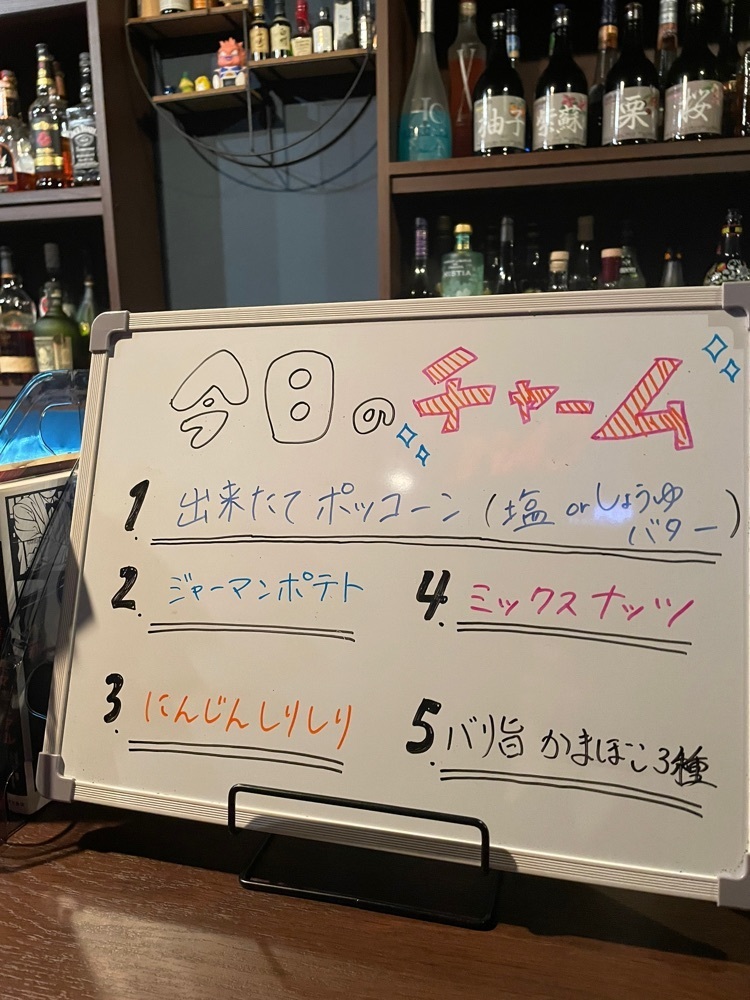 柚子
紫蘇
栗
桜
今日のチャーム
1. 出来たて ポップコーン (塩 or しょうゆ
バター)
2. ジャーマンポテト
4. ミックスナッツ
3. にんじんしりしり
5. バリ旨 かまぼこ3種